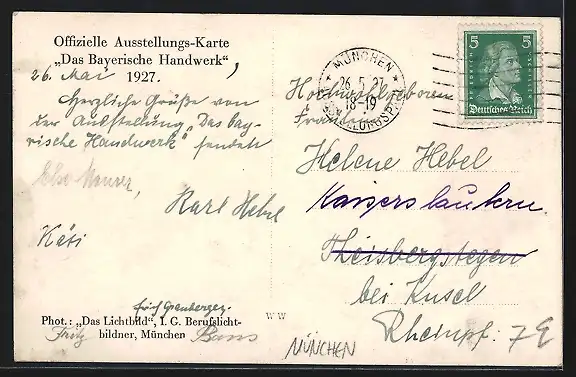 Offizielle Ausstellungs-Karte
"Das Bayerische Handwerk"
26. Mai 1927.
Herzliche Grüße von
der Ausstellung „Das bay-
rische Handwerk" sendet
Karl Hebel
Käti
Erich Grauberger
Phot.: „Das Lichtbild", I. G. Berufslicht-
bildner, München
Fritz
WW
MÜNCHEN
26. 5. 27
18-19
5 5
Deutsches Reich
Hochwohlgeboren
Fräulein
Helene Hebel
Kaiserslautern.
Theisbergstegen
bei Kusel
Rheinpf.
MÜNCHEN